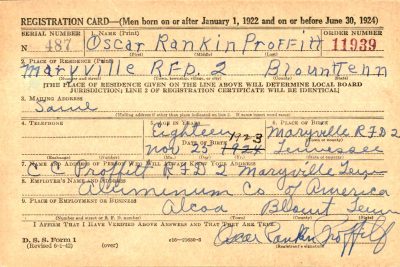 REGISTRATION CARD—(Men born on or after January 1, 1922 and on or before June 30, 1924)
SERIAL NUMBER 1. NAME (Print) ORDER NUMBER
N 487 Oscar Rankin Proffitt 11939
2. PLACE OF RESIDENCE (Print)
Maryville RFD. 2 Blount Tenn
[THE PLACE OF RESIDENCE GIVEN ON THE LINE ABOVE WILL DETERMINE LOCAL BOARD
JURISDICTION; LINE 2 OF REGISTRATION CERTIFICATE WILL BE IDENTICAL]
3. MAILING ADDRESS
Same
[Mailing address if other than place indicated on line 2. If same insert word same]
4. TELEPHONE 5. AGE IN YEARS 6. PLACE OF BIRTH
Eighteen Maryville RFD 2
DATE OF BIRTH
1923
Nov 25 1924 Tennessee
7. NAME AND ADDRESS OF PERSON WHO WILL ALWAYS KNOW YOUR ADDRESS
C C Proffitt RFD 2 Maryville Tenn
8. EMPLOYER'S NAME AND ADDRESS
Alluminum Co of America
9. PLACE OF EMPLOYMENT OR BUSINESS
Alcoa Blount Tenn
(Number and street or R. F. D. number) (Town) (County) (State)
I AFFIRM THAT I HAVE VERIFIED ABOVE ANSWERS AND THAT THEY ARE TRUE.
D. S. S. Form 1
(Revised 6-1-42) (over)
Oscar Rankin Proffitt